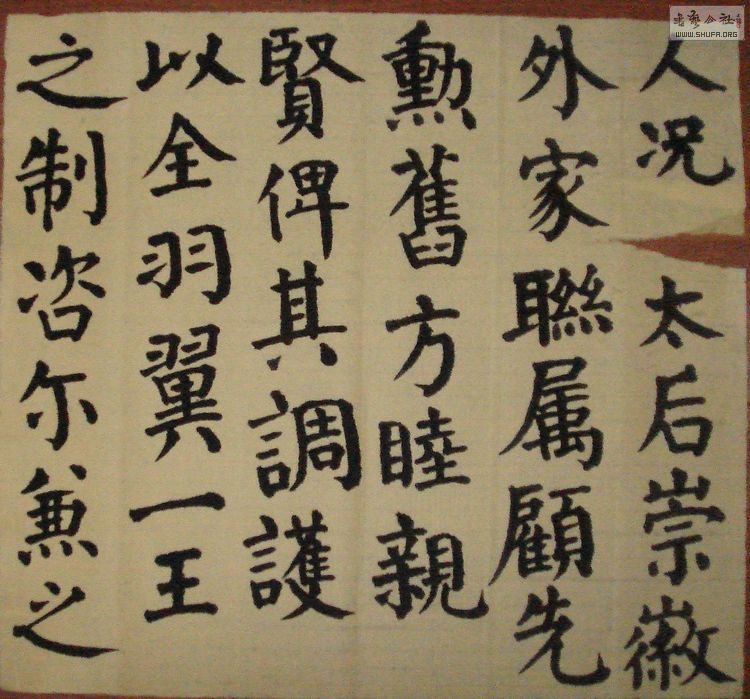 人况 太后崇徽
外家聯属顧先
勲舊方睦親
賢俾其調護
以全羽翼一王
之制咨尔兼之
WWW.SHUFA.ORG